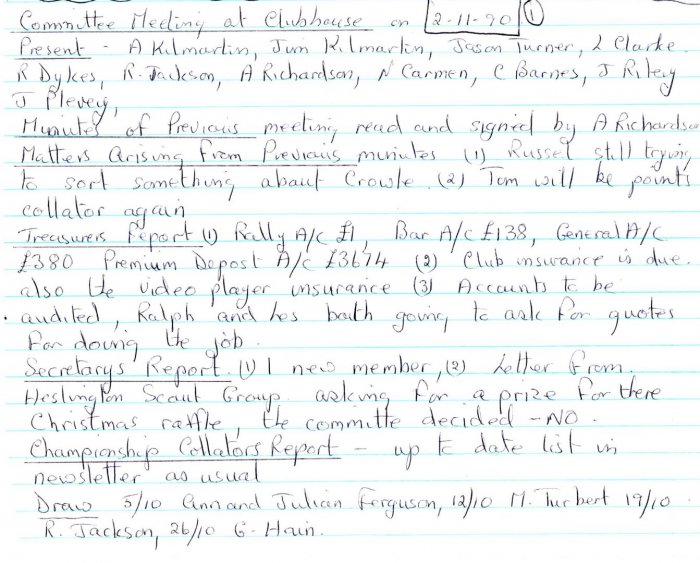 Committee Meeting at Clubhouse on 2-11-90 ①
Present - A Kilmartin, Jim Kilmartin, Jason Turner, L Clarke
R Dykes, R. Jackson, A Richardson, N Carmen, C Barnes, J Riley
J Plevey,
Minutes of Previous meeting read and signed by A Richardson
Matters Arising from Previous minutes (1) Russel still trying
to sort something about Crowle. (2) Tom will be points
collator again
Treasurers Report (1) Rally A/C £1, Bar A/C £138, General A/C
£380 Premium Depost A/c £3674 (2) Club insurance is due.
also the video player insurance (3) Accounts to be
audited, Ralph and Les bath going to ask for quotes
for doing the job.
Secretarys Report. (1) 1 new member, (2) Letter from
Heslington Scout Group asking for a prize for there
Christmas raffle, the committe decided - NO.
Championship Collators Report - up to date list in
newsletter as usual
Draw 5/10 Ann and Julian Ferguson, 12/10 M. Turbert 19/10
R. Jackson, 26/10 G. Hain.